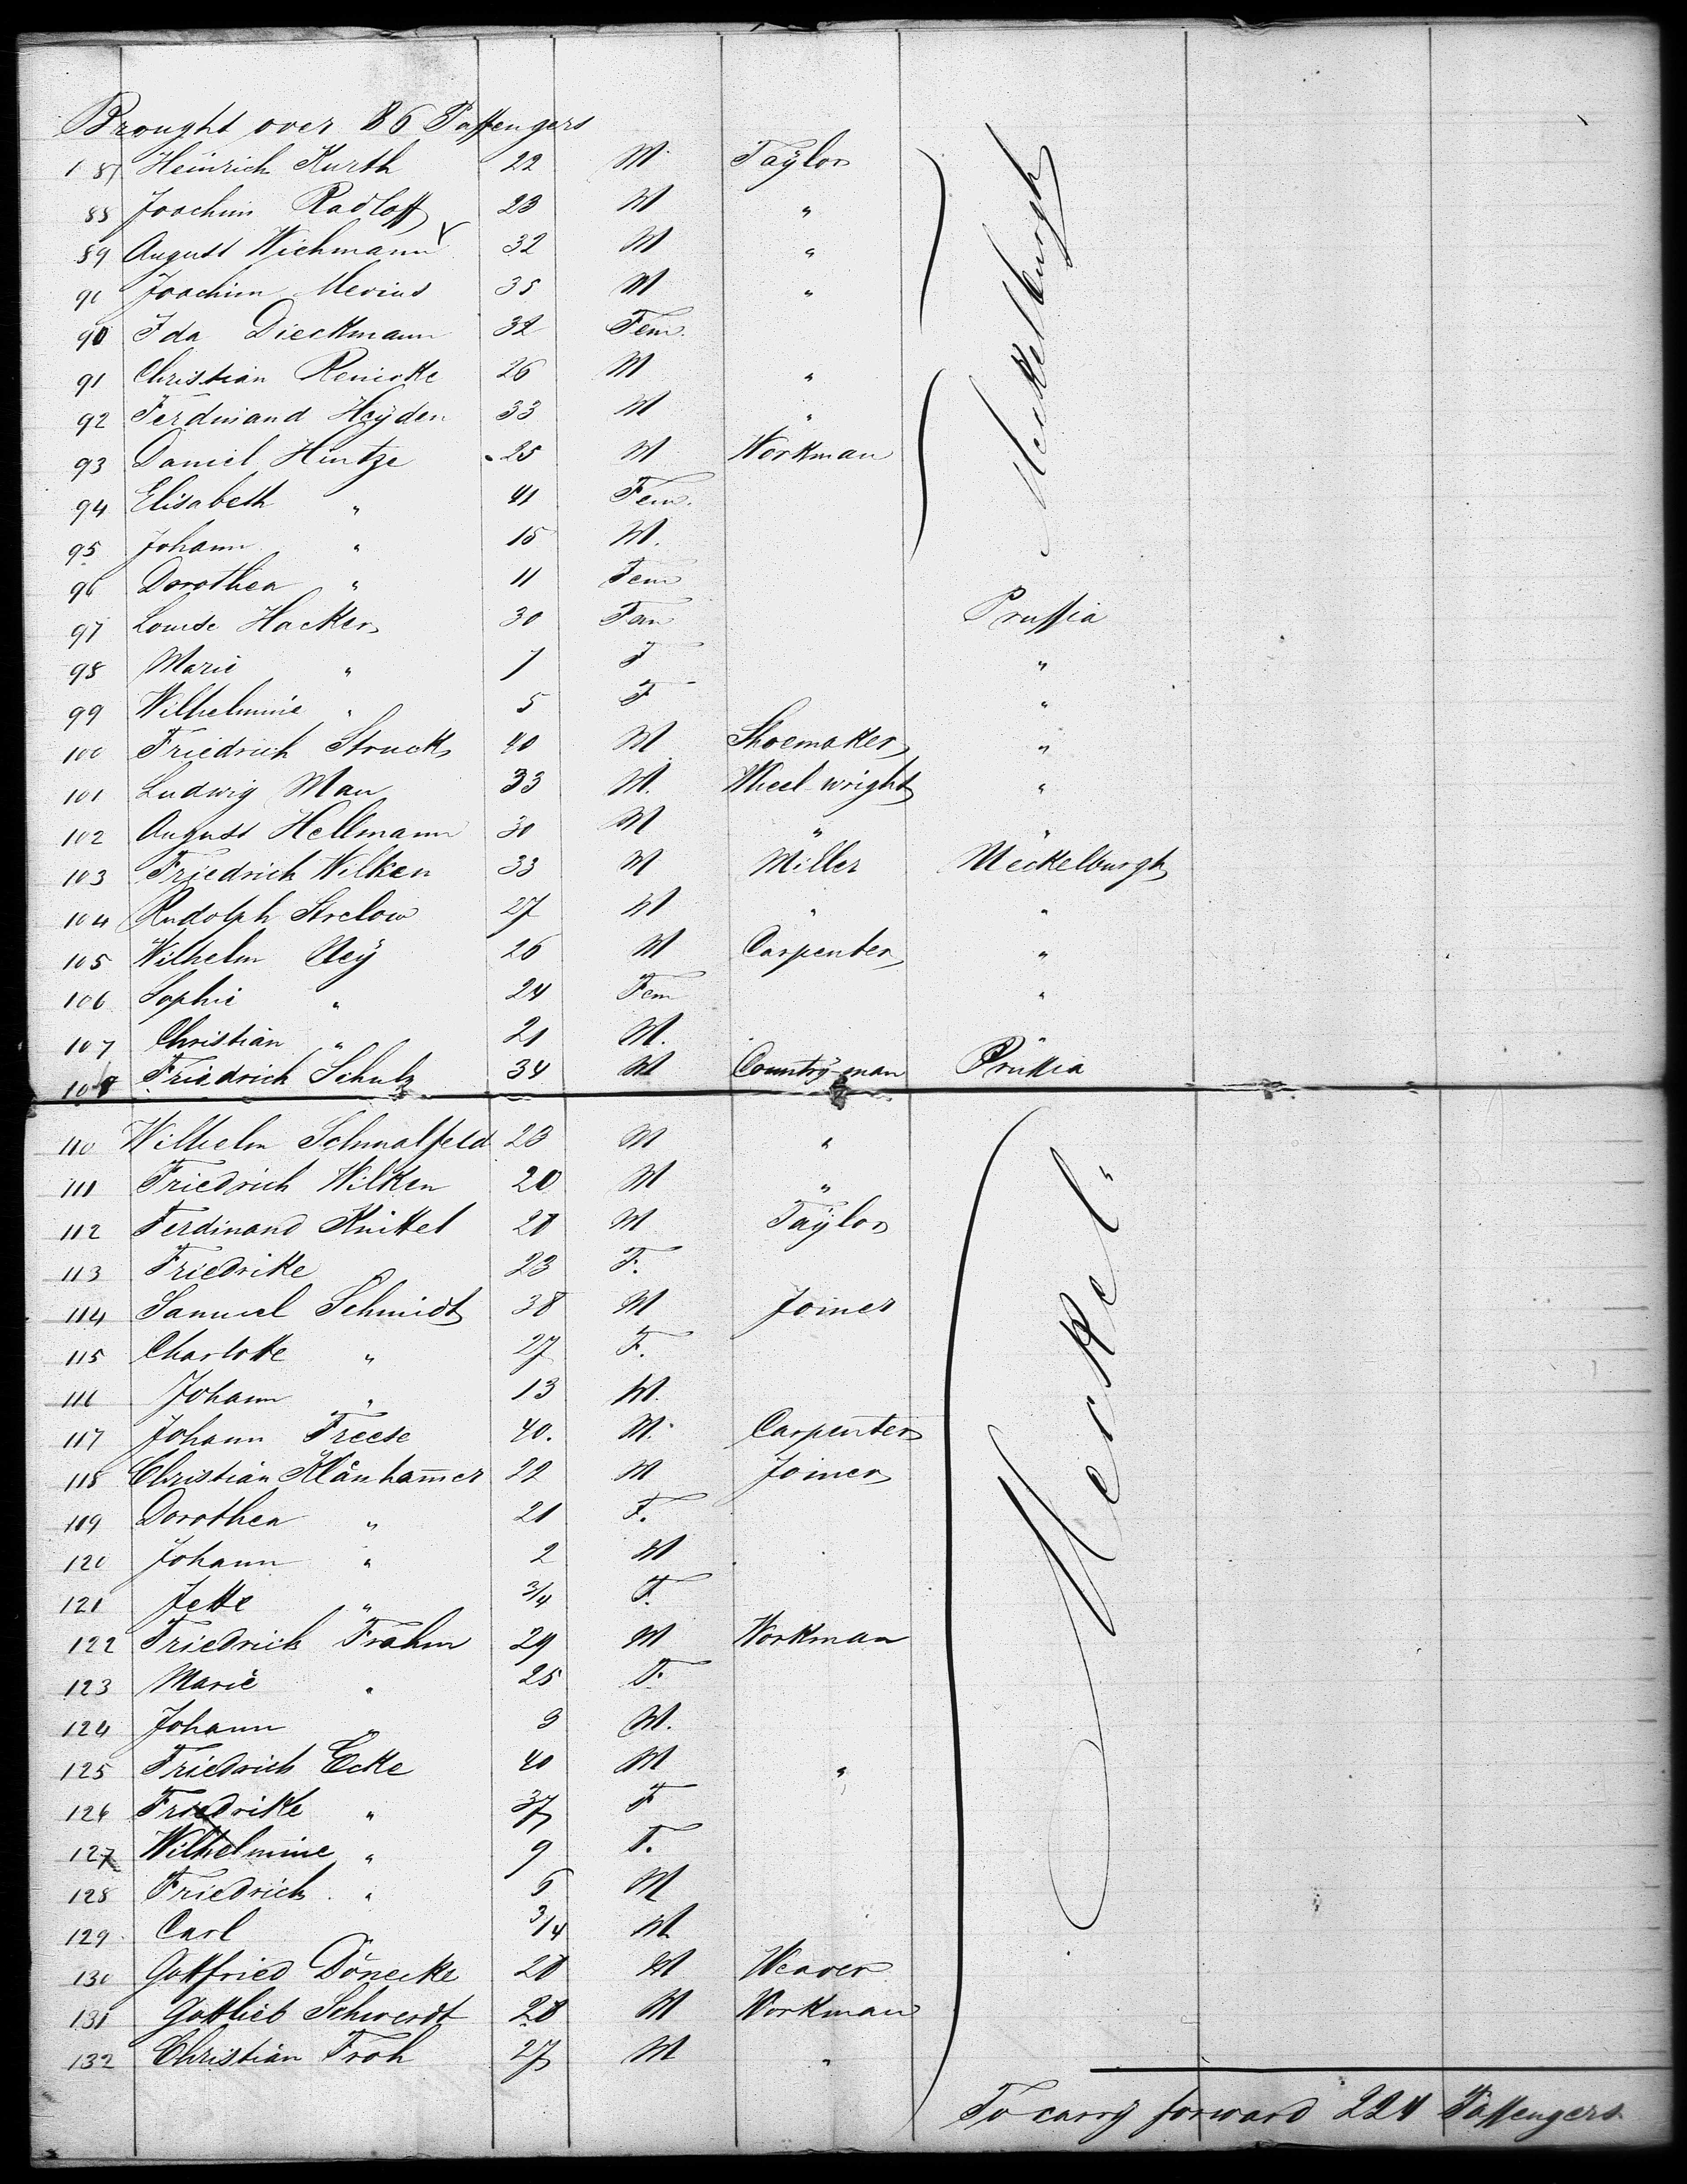 Brought over 86 Passengers
87 Heinrich Kurth 22 M Taÿlor
88 Joachim Radloff 23 M "
89 August Wichmann 32 M "
90 Joachim Mevius 35 M "
90 Ida Dieckmann 32 Fem.
91 Christian Reincke 26 M "
92 Ferdinand Heÿden 33 M "
93 Daniel Hintze 25 M Workman
Meckelburgh
94 Elisabeth " 41 Fem.
95 Johann " 15 M.
96 Dorothea " 11 Fem
97 Louise Hacker 30 Fem Prussia
98 Marie " 7 F "
99 Wilhelmine " 5 F "
100 Friedrich Struck 40 M Shoemaker "
101 Ludwig Mau 33 M. Wheel-wright "
102 August Hellmann 30 M " "
103 Friedrich Wilken 33 M Miller Meckelburgh
104 Rudolph Strelow 27 M " "
105 Wilhelm Neÿ 26 M Carpenter "
106 Sophie " 24 Fem "
107 Christian " 21 M.
108 Friedrich Schulz 34 M Countrÿ-man Prussia
110 Wilhelm Schmalfeld 23 M "
111 Friedrich Wilken 20 M "
112 Ferdinand Knittel 28 M Taÿlor
113 Friedrike 23 F.
114 Samuel Schmidt 38 M Joiner
115 Charlotte " 27 F.
116 Johann " 13 M.
117 Johann Freese 40. M. Carpenter
Meckel"
118 Christian Klänham̅er 22 M Joiner
119 Dorothea " 21 F.
120 Johann " 2 M
121 Jette " 3/4 F.
122 Friedrich Frahm 29 M Workman
123 Marie " 25 F.
124 Johann " 3 M.
125 Friedrich Ecke 40 M "
126 Friedrike " 37 F
127 Wilhelmine " 9 F.
128 Friedrich " 6 M
129 Carl 3/4 M
130 Gottfried Dönecke 28 M Weaver
131 Gottlieb Schwerdt 28 M Workman
132 Christian Froh 27 M "
To carrÿ forward 224 Passengers